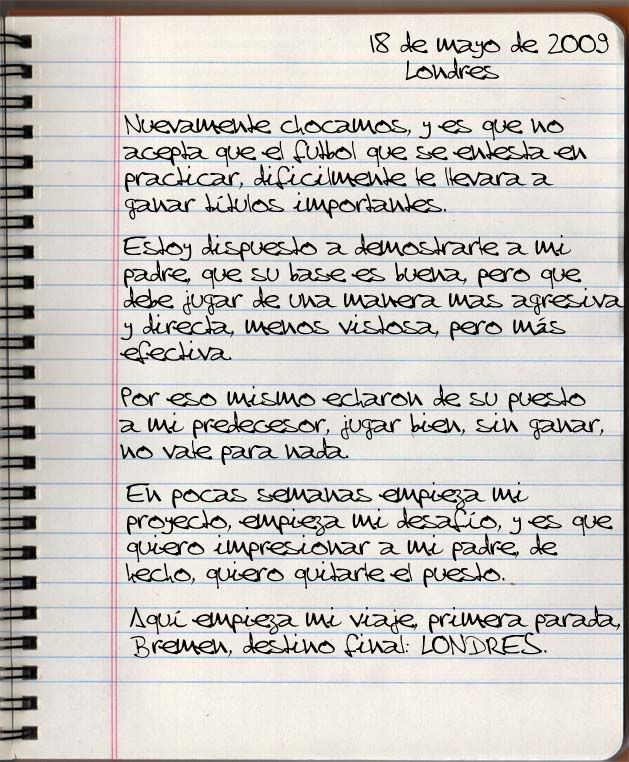 18 de mayo de 2009
Londres
Nuevamente chocamos, y es que no
acepta que el futbol que se entesta en
practicar, dificilmente le llevara a
ganar títulos importantes.
Estoy dispuesto a demostrarle a mi
padre, que su base es buena, pero que
debe jugar de una manera mas agresiva
y directa, menos vistosa, pero más
efectiva.
Por eso mismo echaron de su puesto
a mi predecesor, jugar bien, sin ganar,
no vale para nada.
En pocas semanas empieza mi
proyecto, empieza mi desafío, y es que
quiero impresionar a mi padre, de
hecho, quiero quitarle el puesto.
Aquí empieza mi viaje, primera parada,
Bremen, destino final: LONDRES.